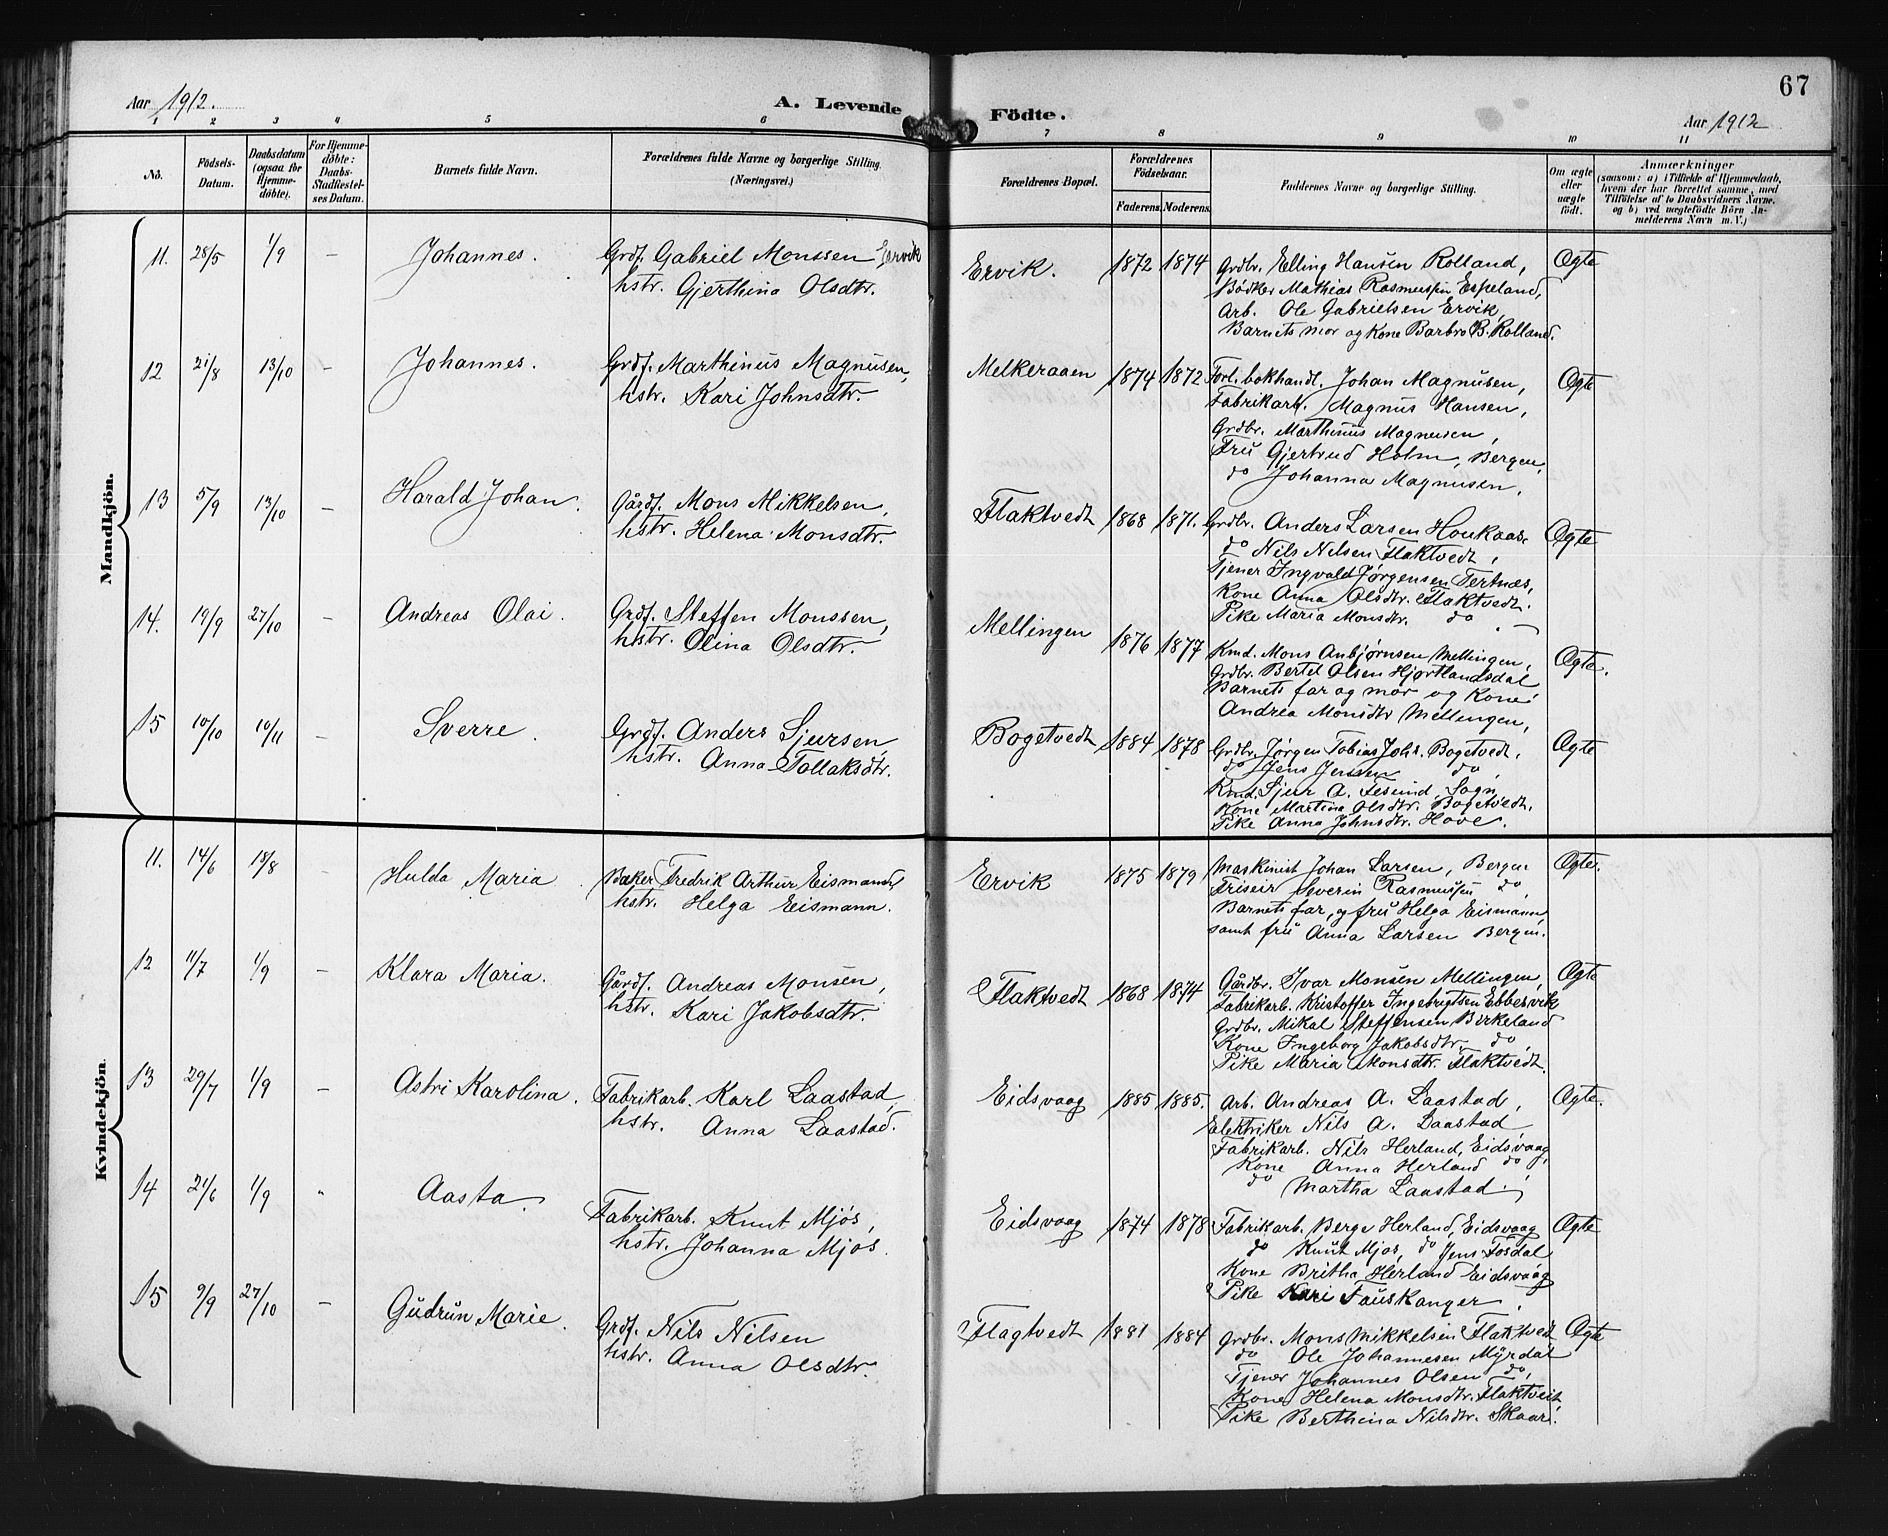 67
Aar 1912.
A. Levende Födte.
Aar 1912
1 2 3 4 5 6 7 8 9 10 11
No.
Födsels-Datum.
Daabsdatum (ogsaa for Hjemme-döbte).
For Hjemme-döbte: Daabs-Stadfæstel-ses Datum.
Barnets fulde Navn.
Forældrenes fulde Navne og borgerlige Stilling. (Næringsvei.)
Forældrenes Bopæl.
Forældrenes Födselsaar.
Faderens. Moderens.
Faddernes Navne og borgerlige Stilling.
Om ægte eller uægte födt.
Anmærkninger
(saasom: a) i Tilfælde af Hjemmedaab,
hvem der har forrettet samme, med
Tilföielse af to Daabsvidners Navne.
og b) ved uægtefödte Börn An-
melderens Navn m. V.)
Mandkjön.
11. 28/5 1/9 – Johannes. Grdf. Gabriel Monssen Ervik
hstr. Gjerthina Olsdtr.
Ervik. 1872 1874 Grdbr. Elling Hansen Rolland, Ægte
Bödker Mathias Rasmussen Espeland,
Arb. Ole Gabrielsen Ervik,
Barnets mor og Kone Barbro B. Rolland.
12 21/8 13/10 – Johannes. Grdf. Marthinus Magnusen,
hstr. Kari Johnsdtr.
Melkeraaen 1874 1872 Forl. bokhandl. Johan Magnusen, Ægte
Fabrikarb. Magnus Hansen,
Grdbr. Marthinus Magnusen,
Fru Gjertrud Holm, Bergen,
do Johanna Magnusen.
13 5/9 13/10 – Harald Johan. Gårdf. Mons Mikkelsen,
hstr. Helena Monsdtr.
Flaktvedt 1868 1871. Grdbr. Anders Larsen Houkaas, Ægte
do Nils Nilsen Flaktvedt,
Tjener Ingvald Jørgensen Tertnæs,
Kone Anna Olsdtr. Flaktvedt.
Pike Maria Monsdtr. do.
14. 19/9 27/10 – Andreas Olai. Grdf. Steffen Monssen,
hstr. Olina Olsdtr.
Mellingen 1876 1877 Kmd. Mons Anbjørnsen Mellingen, Ægte.
Grdbr. Bertel Olsen Hjortlandsdal
Barnets far og mor og Kone
Andrea Monsdtr Mellingen,
15 10/10 10/11 – Sverre. Grdf. Anders Sjursen,
hstr. Anna Tollaksdtr.
Bogetvedt 1884 1878 Grdbr. Jørgen Tobias Johs. Bogetvedt. Ægte
do Jens Jensen do,
Kmd. Sjur A. Sogn
Kone Martina Olsdtr. Bogetvedt.
Pike Anna Johnsdtr. Hove.
Kvindekjön.
11. 14/6 18/8 – Hulda Maria Baker Fredrik Arthur Eismann
hstr. Helga Eismann.
Ervik 1875 1879 Maskinist Johan Larsen, Bergen Ægte.
Friseir Severin Rasmussen do,
Barnets far, og fru Helga Eismann,
samt fru Anna Larsen Bergen.
12 11/7 1/9 – Klara Maria. Gårdf. Andreas Monsen,
hstr. Kari Jakobsdtr.
Flaktvedt 1868 1874 Gårdbr. Ivar Monsen Mellingen, Ægte
Fabrikarb. Kristoffer Ingebrigtsen Ebbesvik,
Grdbr. Mikal Steffensen Birkeland
Kone Ingeborg Jakobsdtr. do,
Pike Maria Monsdtr. Flaktvedt.
13 29/7 1/9 – Astri Karolina. Fabrikarb. Karl Laastad,
hstr. Anna Laastad.
Eidsvaag 1885 1885. Arb. Andreas A. Laastad, Ægte.
Elektriker Nils A. Laastad
Fabrikarb. Nils Herland, Eidsvaag,
Kone Anna Herland do,
do Martha Laastad.
14 21/6 1/9 " Aasta. Fabrikarb. Knut Mjös,
hstr. Johanna Mjos.
Eidsvaag 1874 1878 Fabrikarb. Berge Herland, Eidsvaag Ægte
do Knut Mjos, do Jens Fosdal
Kone Britha Herland Eidsvaag
Pike Kari Fauskanger.
15 9/9 27/10 – Gudrun Marie. Grdf. Nils Nilsen
hstr. Anna Olsdtr.
Flagtvedt 1881 1884 Grdbr. Mons Mikkelsen Flaktvedt Ægte
do Ole Johannesen Myrdal
Tjener Johannes Olsen do,
Kone Helena Monsdtr. Flaktveit
Pike Berthina Nilsdtr. Skaar.